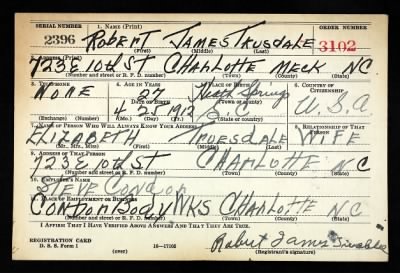 SERIAL NUMBER 1. NAME (Print) ORDER NUMBER
2396 ROBERT JAMES TRUSDALE 3102
(First) (Middle) (Last)
2. ADDRESS (Print)
723 E 10th ST CHARLOTTE MECK NC
(Number and street or R. F. D. number) (Town) (County) (State)
3. TELEPHONE 4. AGE IN YEARS 5. PLACE OF BIRTH 6. COUNTRY OF CITIZENSHIP
NONE 27 Heath Springs
DATE OF BIRTH (Town or county)
4 25 1912 S U.S.A
(Exchange) (Number) (Mo.) (Day) (Yr.) (State or country)
7. NAME OF PERSON WHO WILL ALWAYS KNOW YOUR ADDRESS RELATIONSHIP OF THAT PERSON
ELIZABETH TRUESDALE WIFE
(Mr., Mrs., Miss) (First) (Middle) (Last)
9. ADDRESS OF THAT PERSON
723 E 10th ST CHARLOTTE NC
(Number and street or R. F. D. number) (Town) (County) (State)
10. EMPLOYER'S NAME
STEVE CONDON
11. PLACE OF EMPLOYMENT OR BUSINESS
BODY WKS CHARLOTTE NC
(Number and street or R. F. D. number) (Town) (County) (State)
I AFFIRM THAT I HAVE VERIFIED ABOVE ANSWERS AND THAT THEY ARE TRUE.
REGISTRATION CARD
D. S. S. Form 1 (over) 16—17105 Robert James
(Registrant's signature)